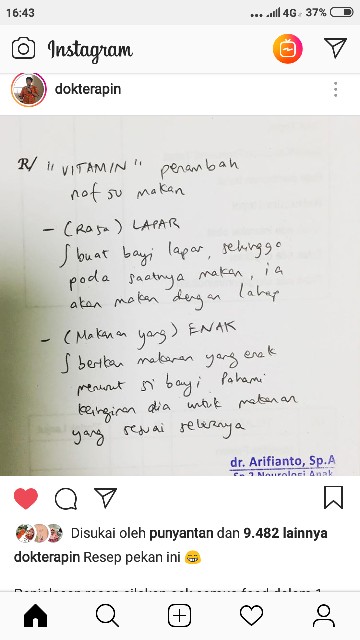 16:43
4G 37%
Instagram
dokterapin
R/ "VITAMIN" penambah
nafsu makan
- (Rasa) LAPAR
∫ buat bayi lapar, sehingga
pada saatnya makan, ia
akan makan dengan lahap
- (Makanan yang) ENAK
∫ berikan makanan yang enak
menurut si bayi. Pahami
keinginan dia untuk makanan
yang sesuai seleranya
dr. Arifianto, Sp.A
Sp.2 Neurologi Anak
Disukai oleh punyantan dan 9.482 lainnya
dokterapin Resep pekan ini 😁